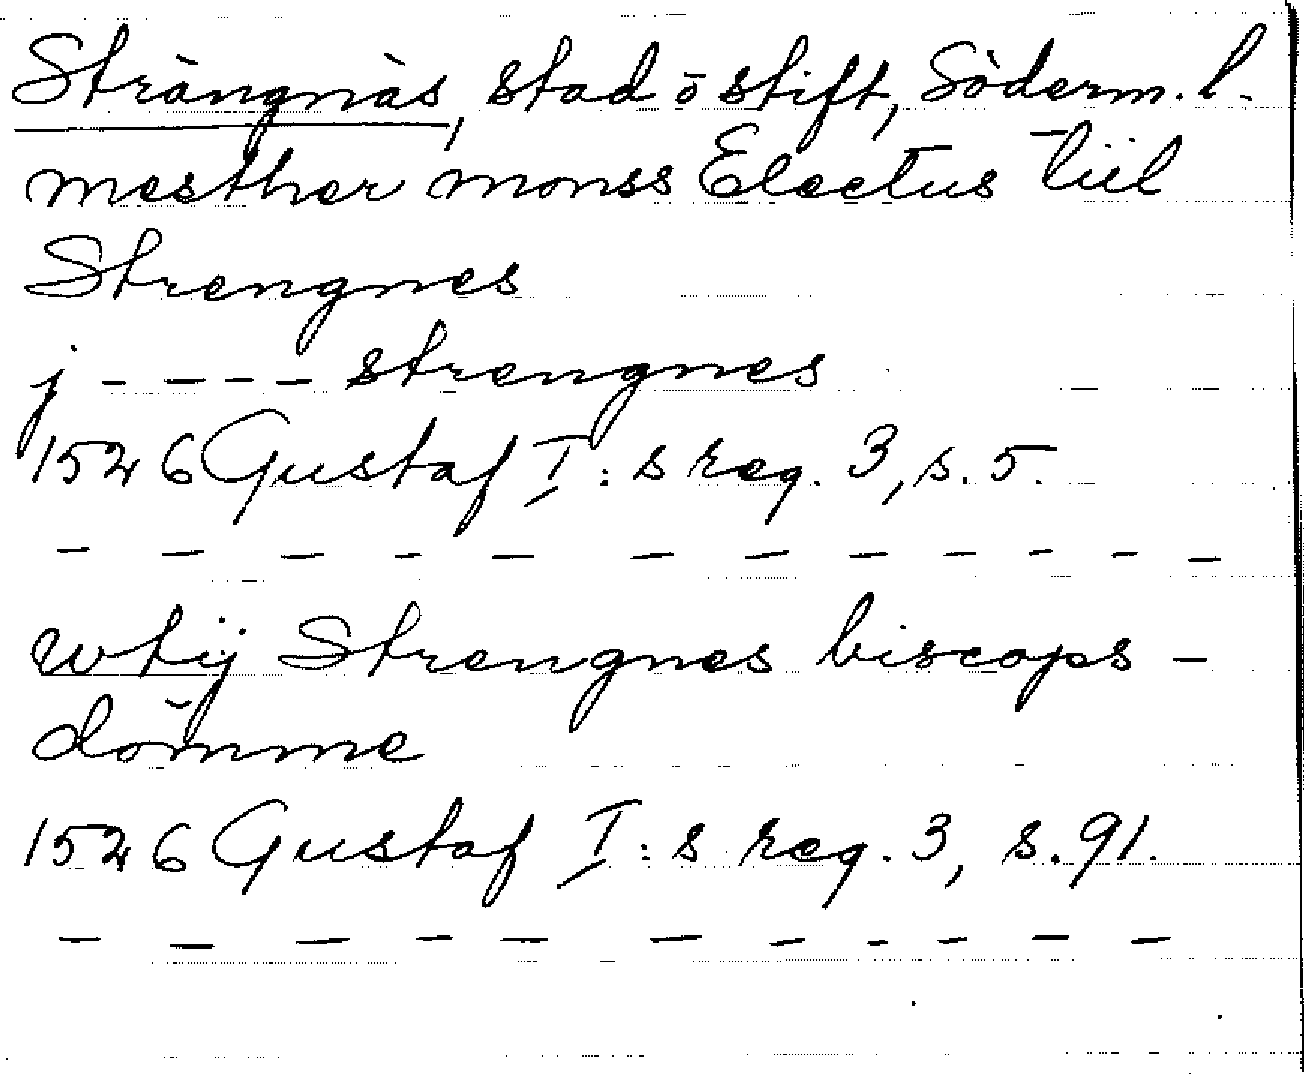 Strängnäs, stad o stift, Söderm. l.
mesther monss Electus tiil
Strengnes
j ---- strengnes
1526 Gustaf I:s reg. 3, s. 5.
- - - - - - - - - - - -
wtij Strengnes biscops -
dömme
1526 Gustaf I:s reg. 3, s. 91.
- - - - - - - - - - -